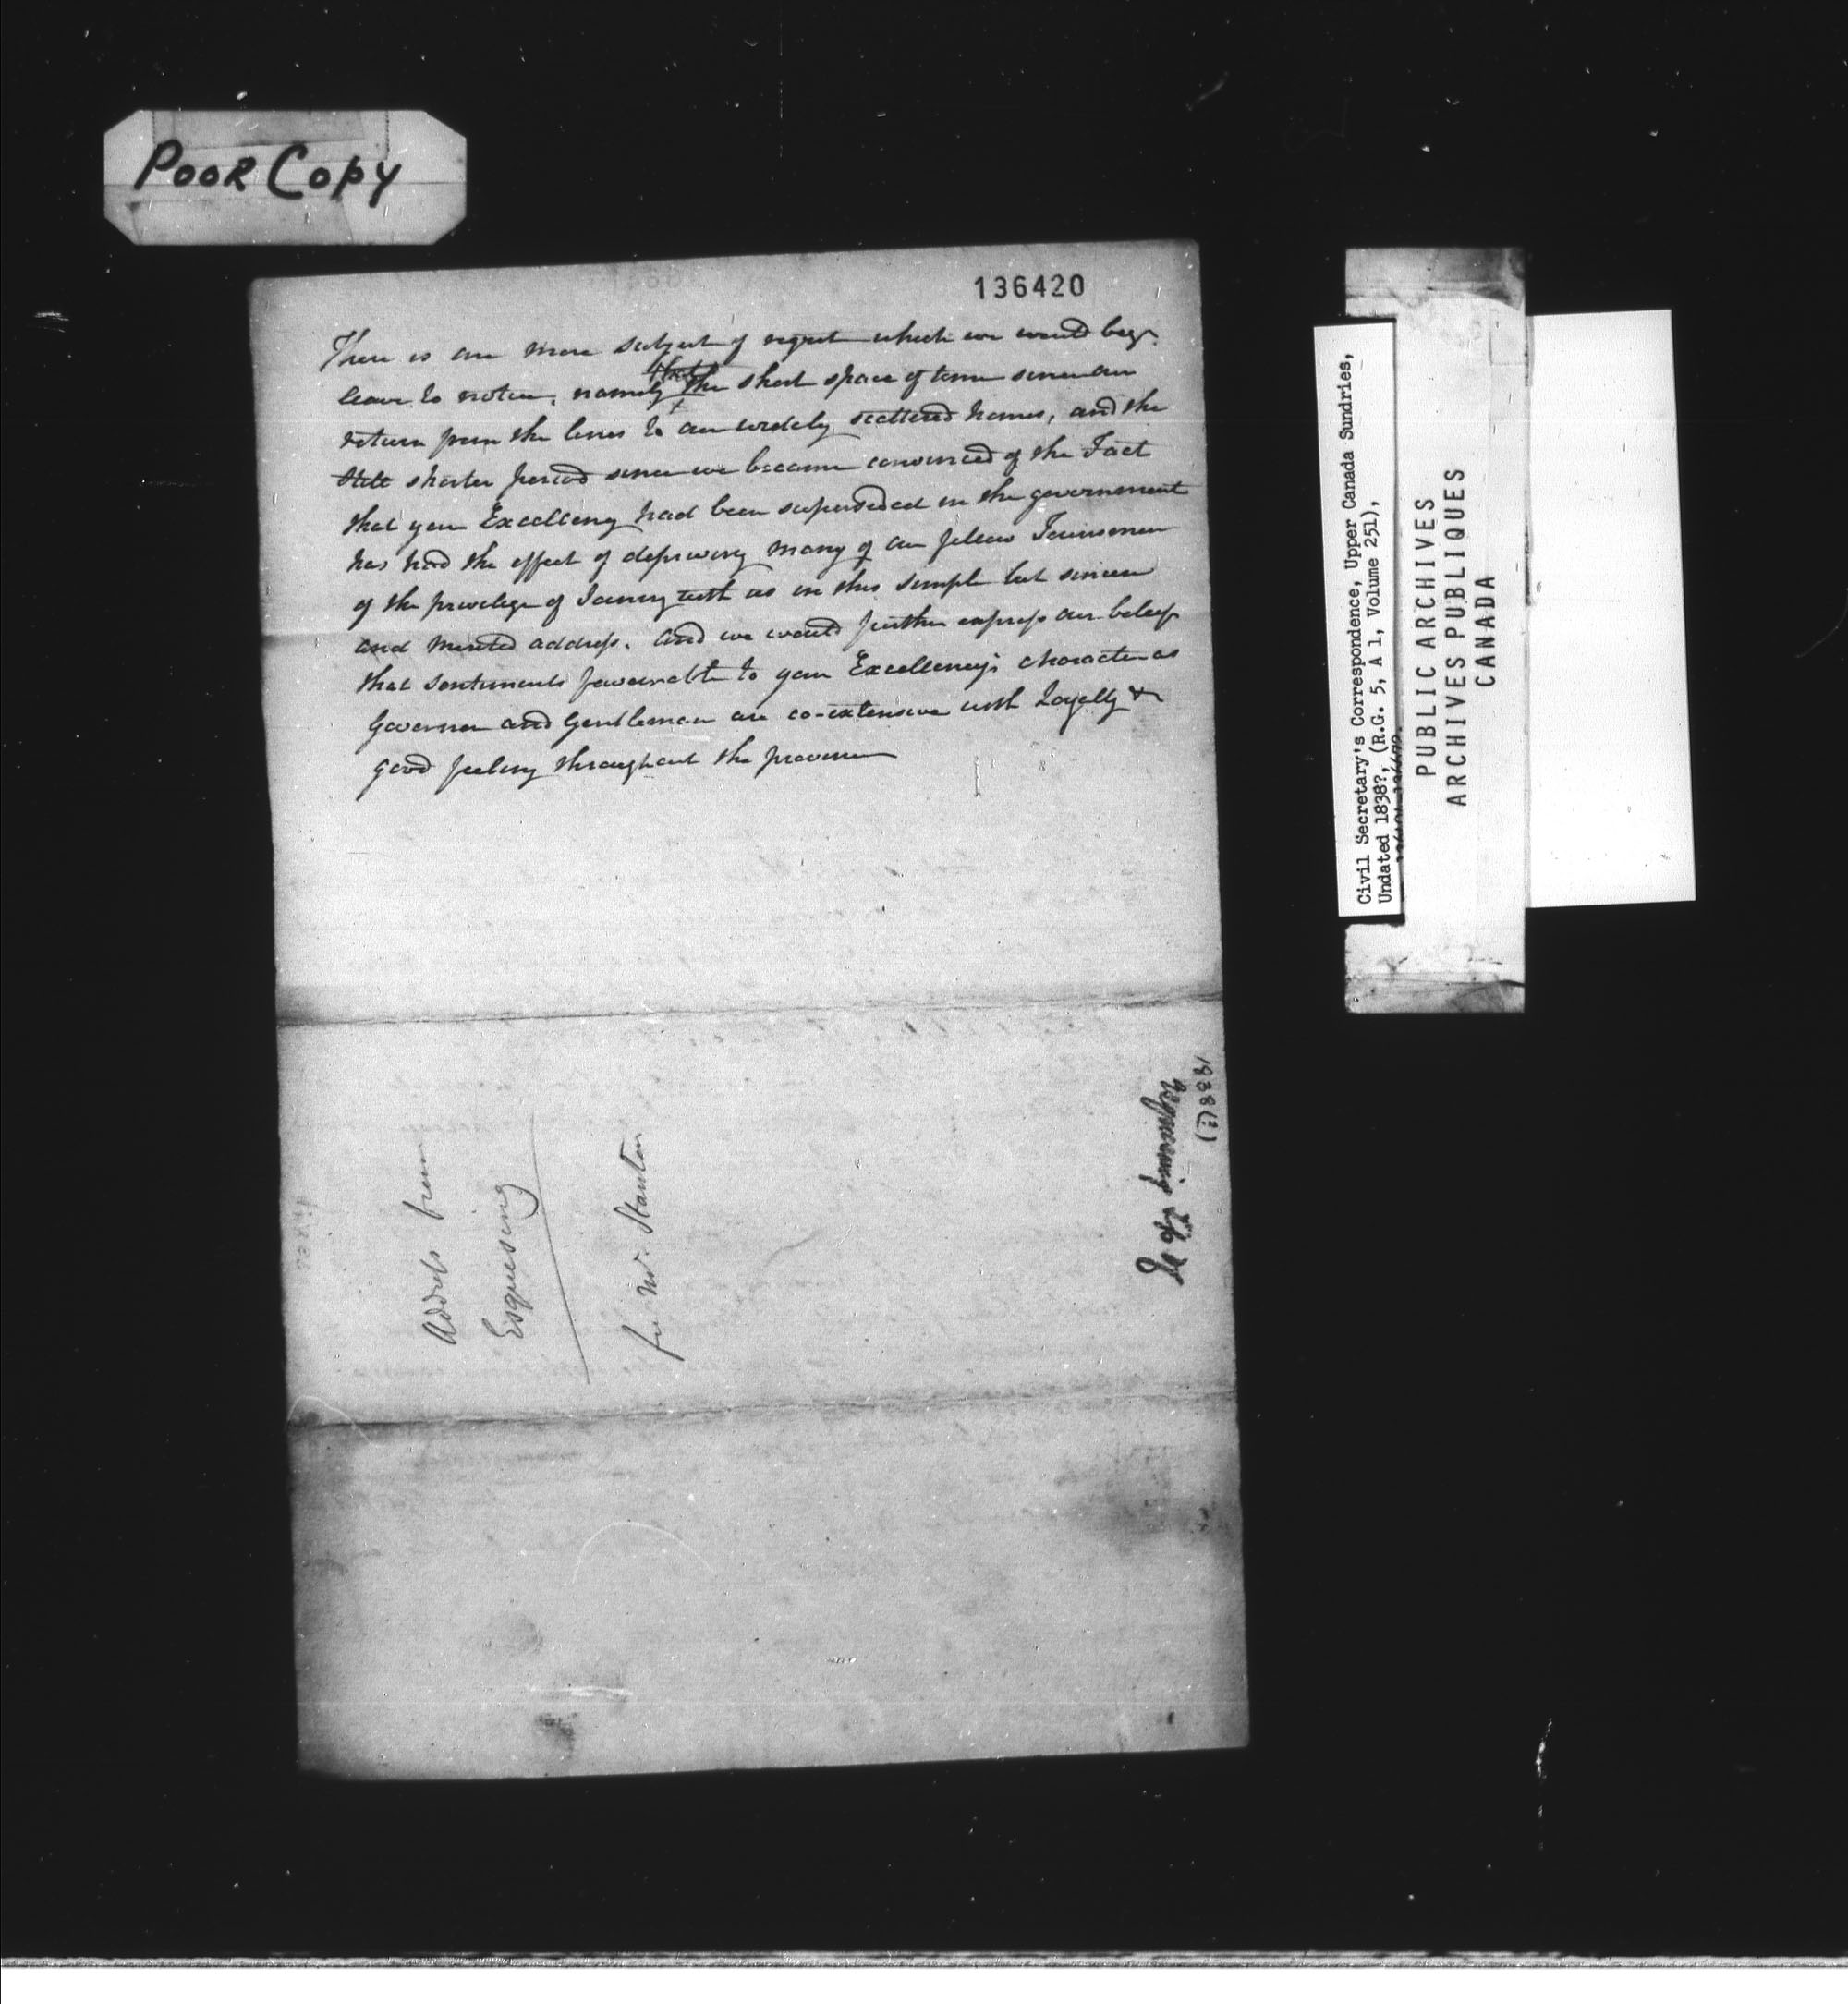 POOR COPY
136420
There is one more subject of regret which we would beg
leave to notice, namely that the short space of time since our
return from the lines to our widely scattered homes, and the
still shorter period since we became convinced of the Fact
that your Excellency had been superseded in the government
has had the effect of depriving many of our fellow Townsmen
of the privilege of Joining with us in this simple but sincere
and merited address. and we would further express our belief
that sentiments favourable to your Excellency's character as
Governor and Gentleman are co-extensive with Loyalty &
good feeling throughout the province
Address from
Esquesing
for Mr. Stanton
Esquesing
1838(?)
Civil Secretary's Correspondence, Upper Canada Sundries,
Undated 1838?, (R.G. 5, A 1, Volume 251),
PUBLIC ARCHIVES
ARCHIVES PUBLIQUES
CANADA